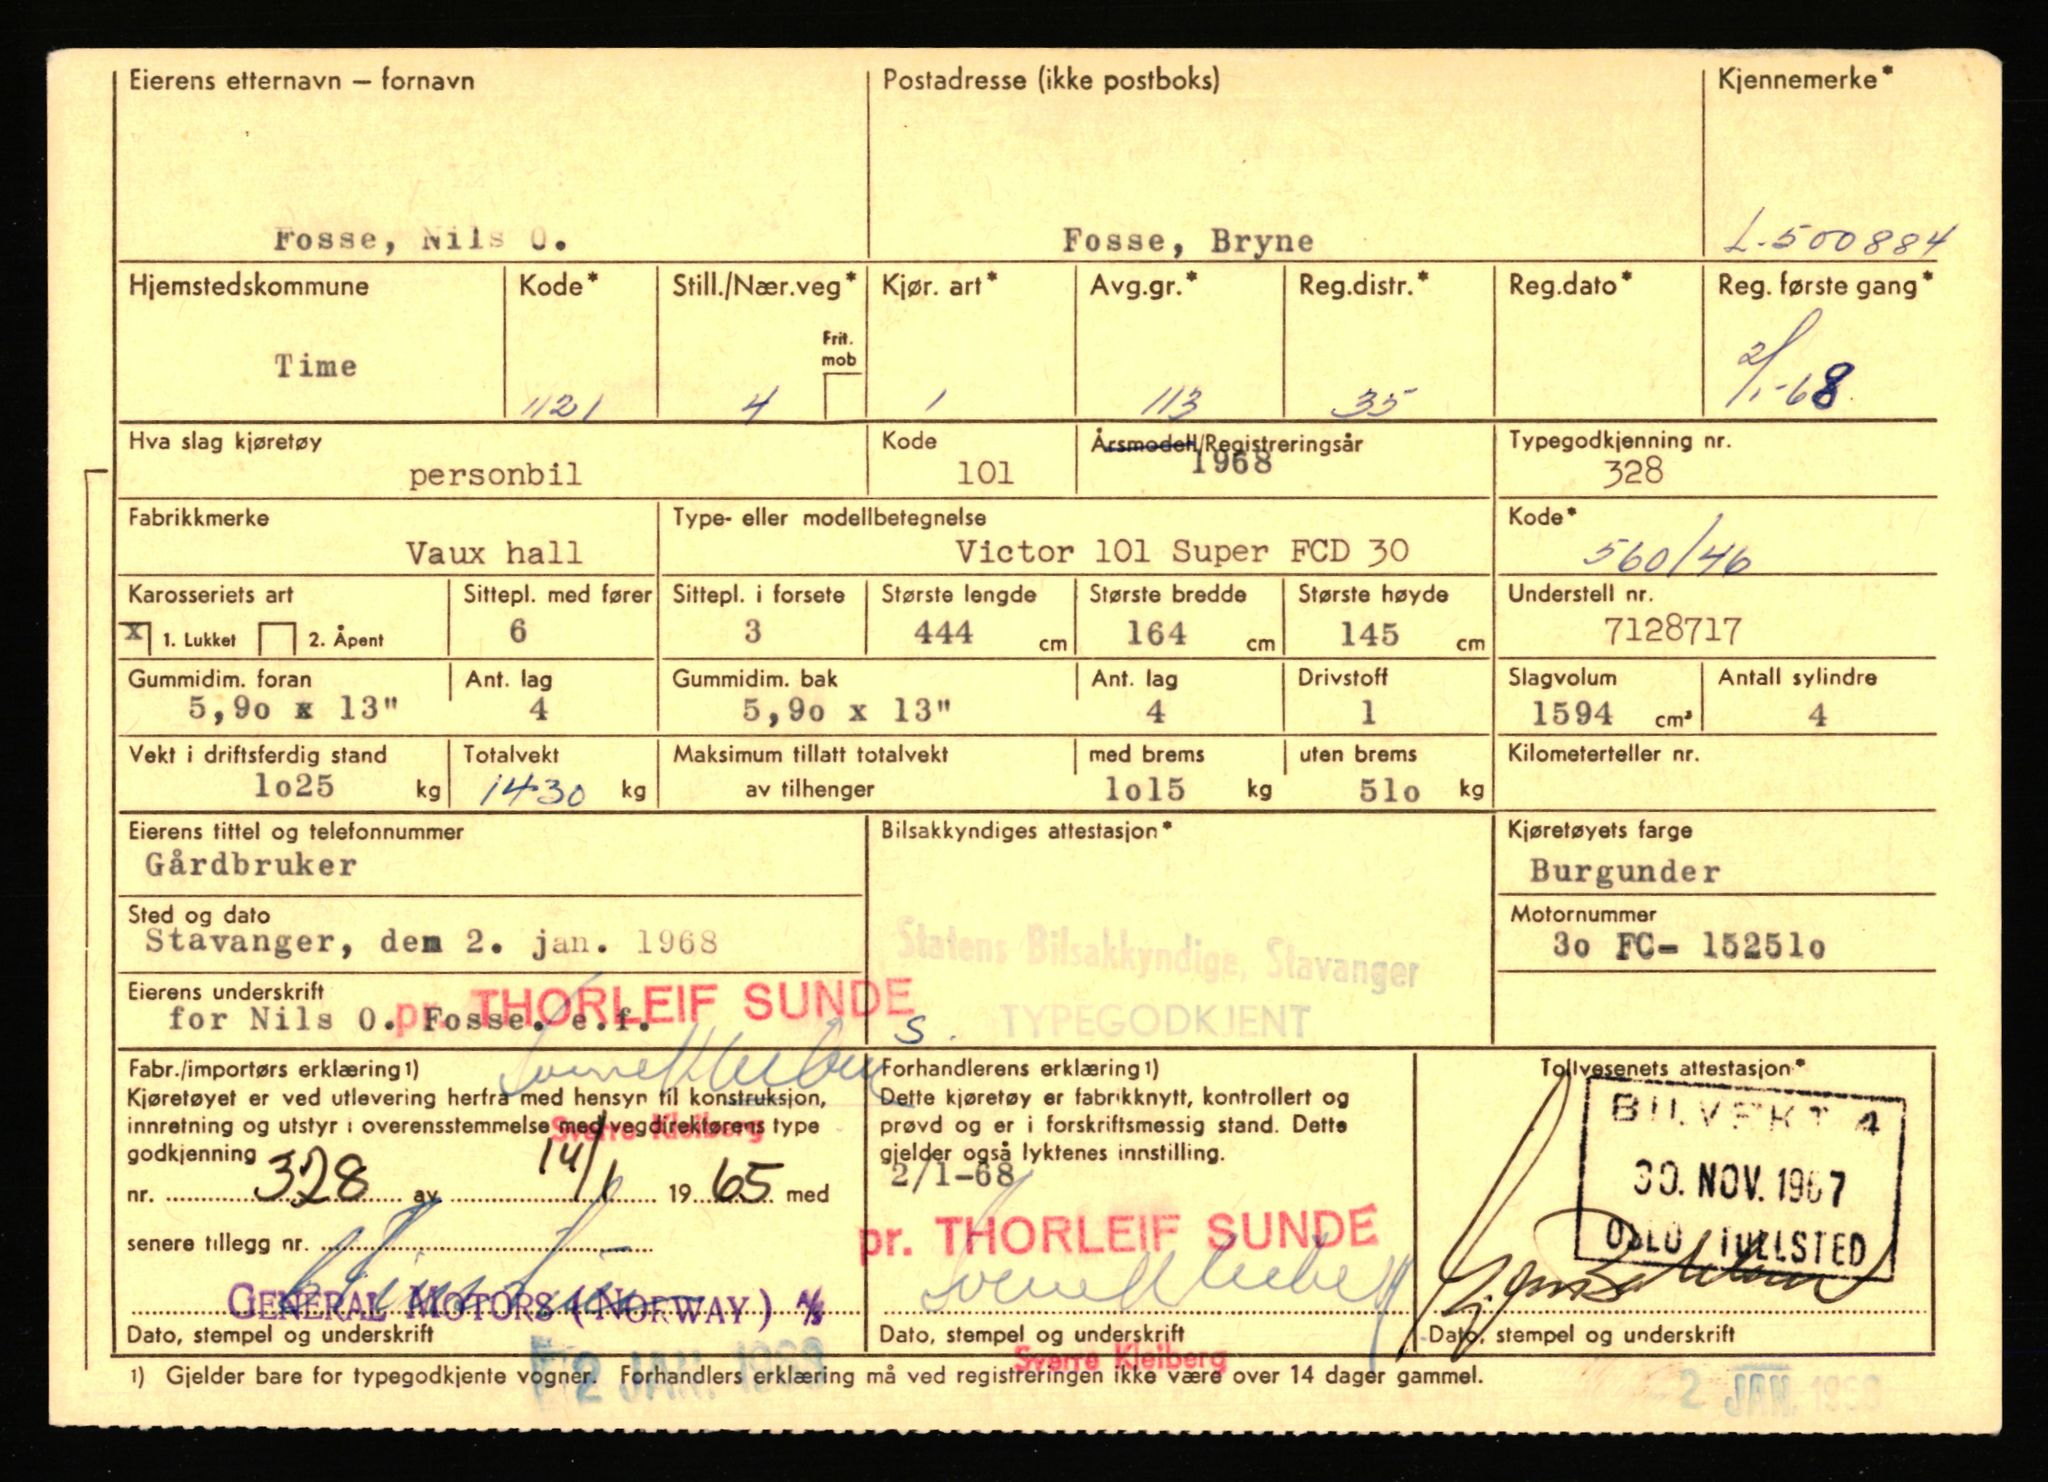 Eierens etternavn – fornavn Postadresse (ikke postboks) Kjennemerke*
Fosse, Nils O. Fosse, Bryne L-500884
Hjemstedskommune Kode* Still./Nær.veg* Kjør. art* Avg.gr.* Reg.distr.* Reg.dato* Reg. første gang*
Frit.
mob
Time 1121 4 1 113 35 2/1-68
Hva slag kjøretøy Kode Årsmodell/Registreringsår Typegodkjenning nr.
personbil 101 1968 328
Fabrikkmerke Type- eller modellbetegnelse Kode*
Vaux hall Victor 101 Super FCD 30 560/46
Karosseriets art Sittepl. med fører Sittepl. i forsete Største lengde Største bredde Største høyde Understell nr.
x 1. Lukket 2. Åpent 6 3 444 cm 164 cm 145 cm 7128717
Gummidim. foran Ant. lag Gummidim. bak Ant. lag Drivstoff Slagvolum Antall sylindre
5,9o x 13" 4 5,9o x 13" 4 1 1594 cm³ 4
Vekt i driftsferdig stand Totalvekt Maksimum tillatt totalvekt med brems uten brems Kilometerteller nr.
1o25 kg 1430 kg av tilhenger 1o15 kg 51o kg
Eierens tittel og telefonnummer Bilsakkyndiges attestasjon* Kjøretøyets farge
Gårdbruker Burgunder
Sted og dato Motornummer
Stavanger, den 2. jan. 1968 Statens Bilsakkyndige, Stavanger 3o FC- 15251o
Eierens underskrift pr. THORLEIF SUNDE TYPEGODKJENT
for Nils O. Fosse. e.f. S.
Sverre Kleiberg
Fabr./importørs erklæring1) Forhandlerens erklæring1) Tollvesenets attestasjon*
Kjøretøyet er ved utlevering herfra med hensyn til konstruksjon, Dette kjøretøy er fabrikknytt, kontrollert og BILVEKT 4
innretning og utstyr i overensstemmelse med vegdirektørens type prøvd og er i forskriftsmessig stand. Dette
Sverre Kleiberg
godkjenning gjelder også lyktenes innstilling.
nr. 328 av 14/1 1965 med 2/1-68 30. NOV. 1967
senere tillegg nr. pr. THORLEIF SUNDE OSLO TOLLSTED
GENERAL MOTORS (NORWAY) A/S Sverre Kleiberg
Dato, stempel og underskrift Dato, stempel og underskrift Dato, stempel og underskrift
2 JAN. 1968 Sverre Kleiberg
1) Gjelder bare for typegodkjente vogner. Forhandlers erklæring må ved registreringen ikke være over 14 dager gammel.
2 JAN. 1968